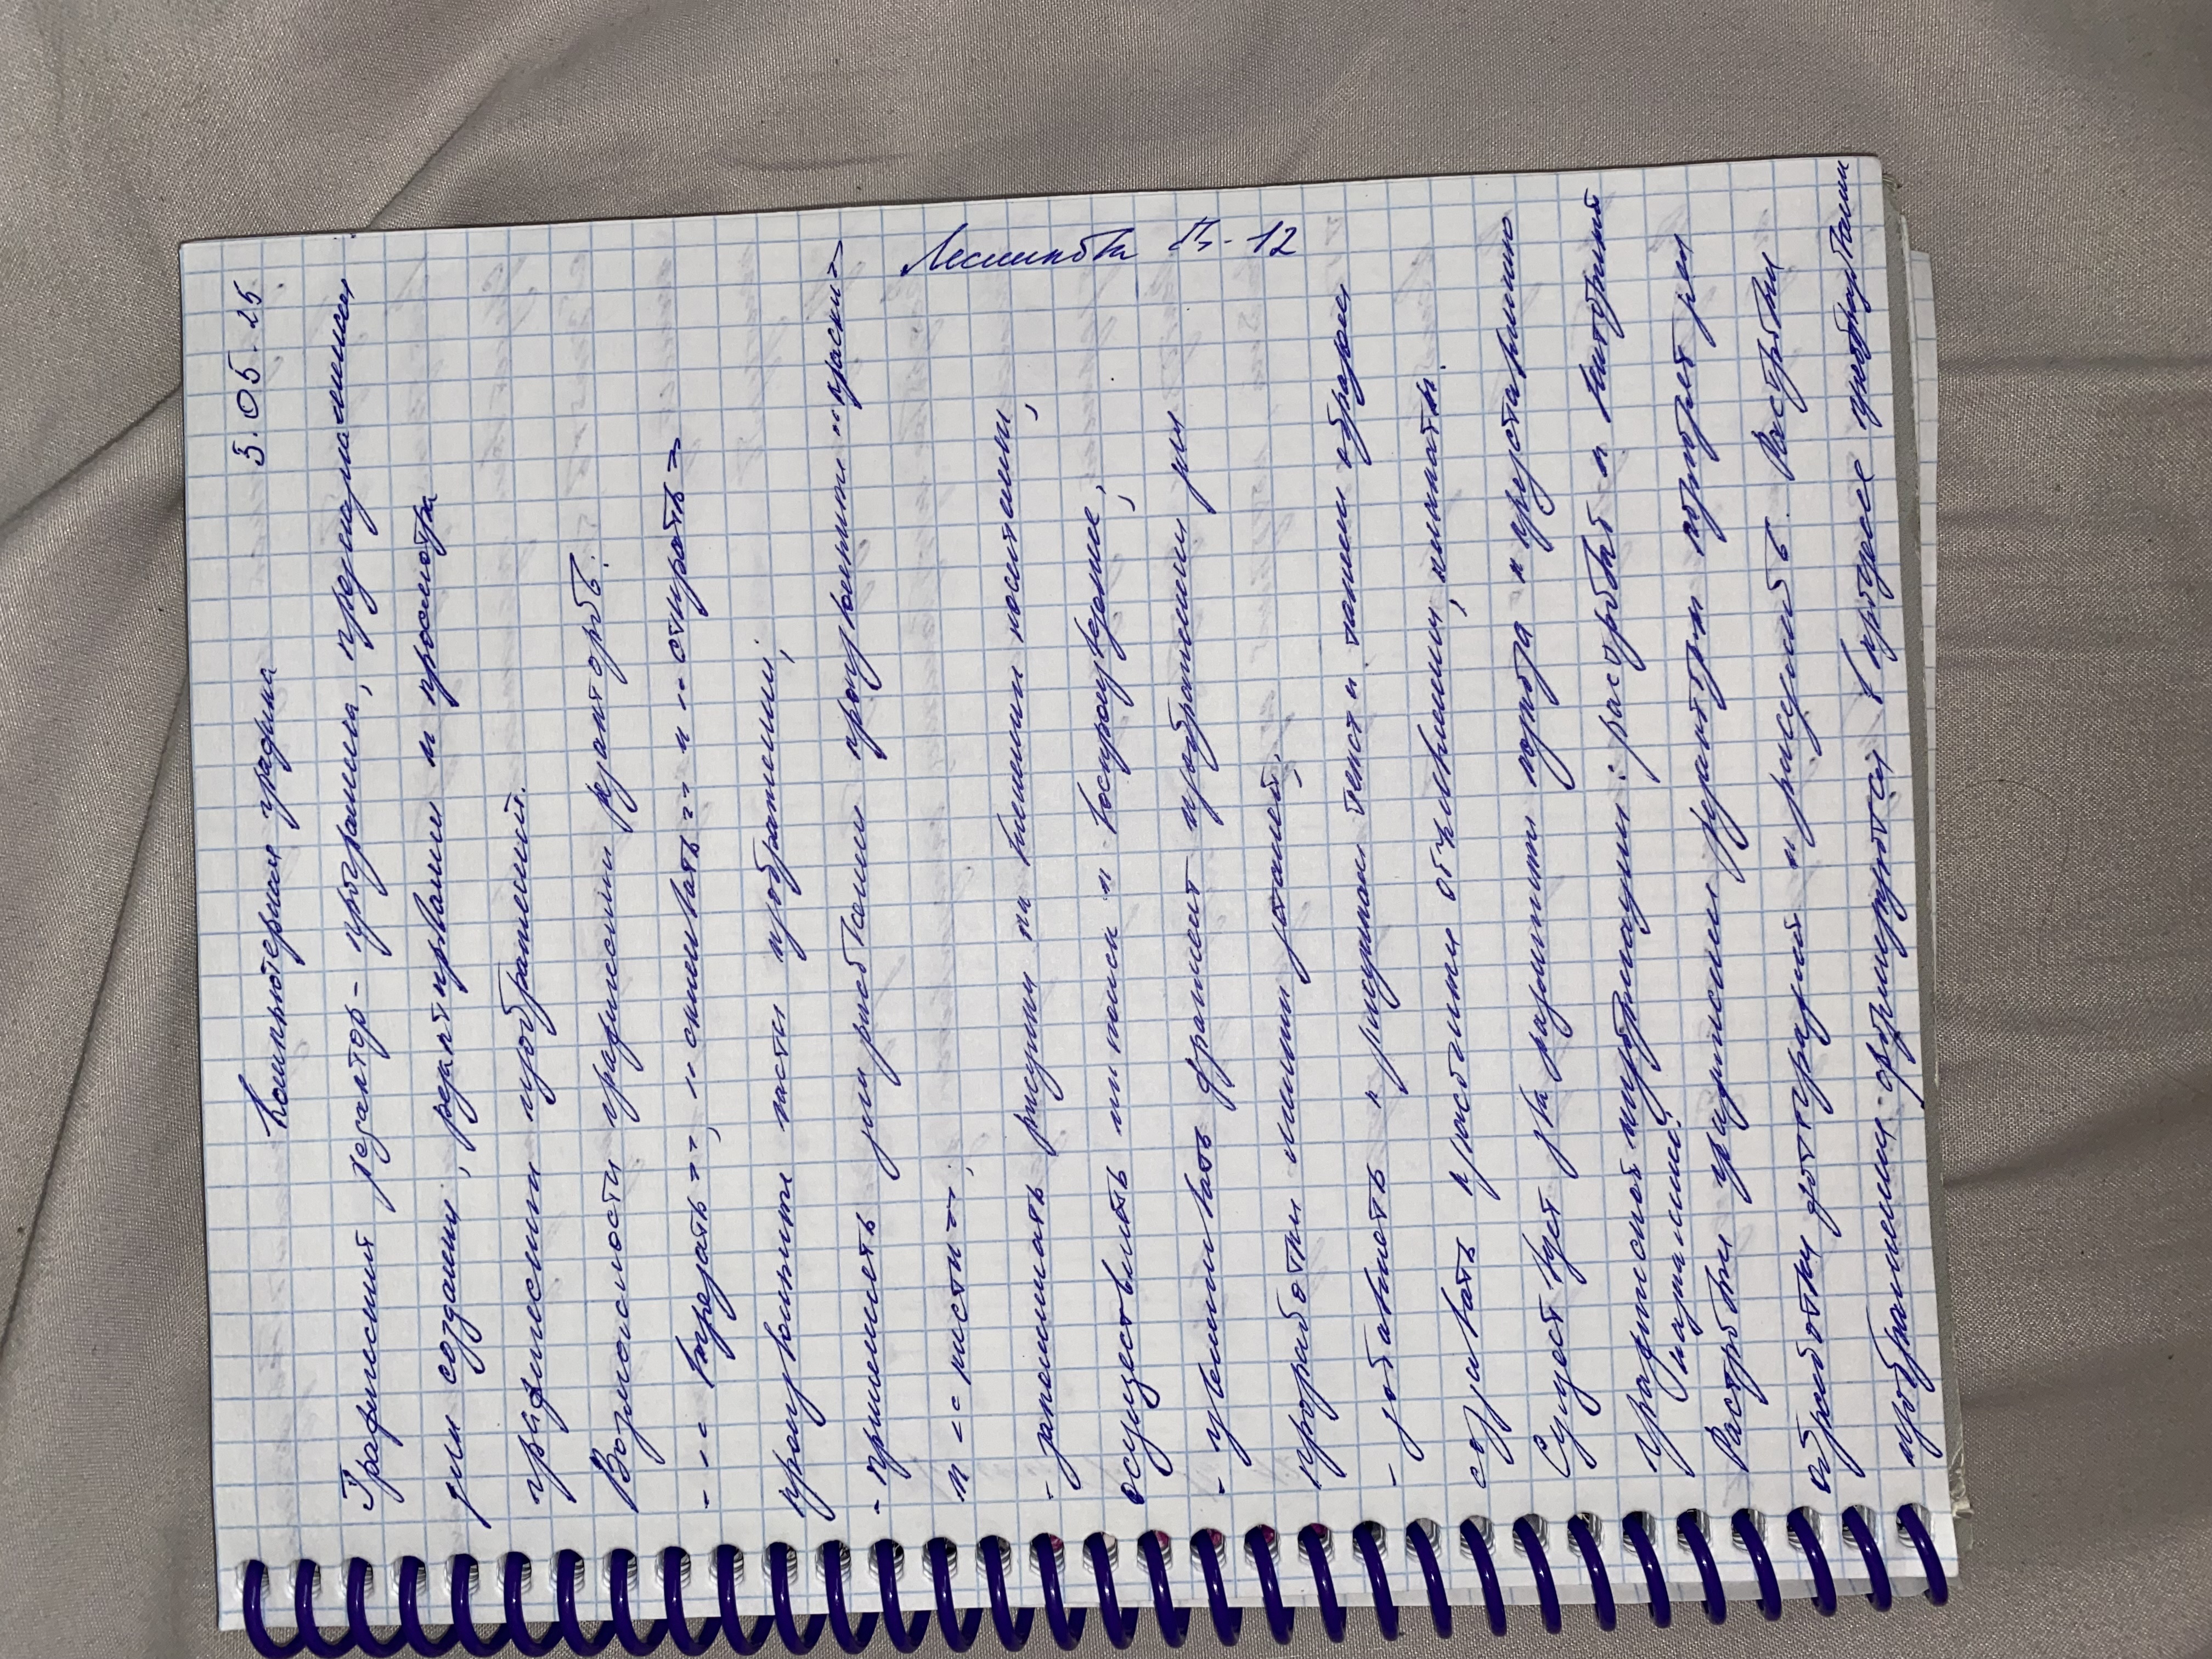 5.05.25
Компьютерная графика
Графический редактор - программа, предназначенная
для создания, редактирования и просмотра
графических изображений.
Возможности графических редакторов:
- «вырезать», «склеивать» и «стирать»
произвольные части изображений;
- применять для рисования произвольные «краски»
и «кисти»;
- запоминать рисунки на внешних носителях,
осуществлять их поиск и воспроизведение;
- увеличивать фрагмент изображения для
проработки мелких деталей;
- добавлять к рисункам текст и таким образом
создавать красочные объявления, визитки.
Существует два различных подхода к представлению
графической информации: растровый и векторный
Растровые графические редакторы
обработки фотографий и рисунков. Растровые
изображения формируются в процессе преобразования
П-12